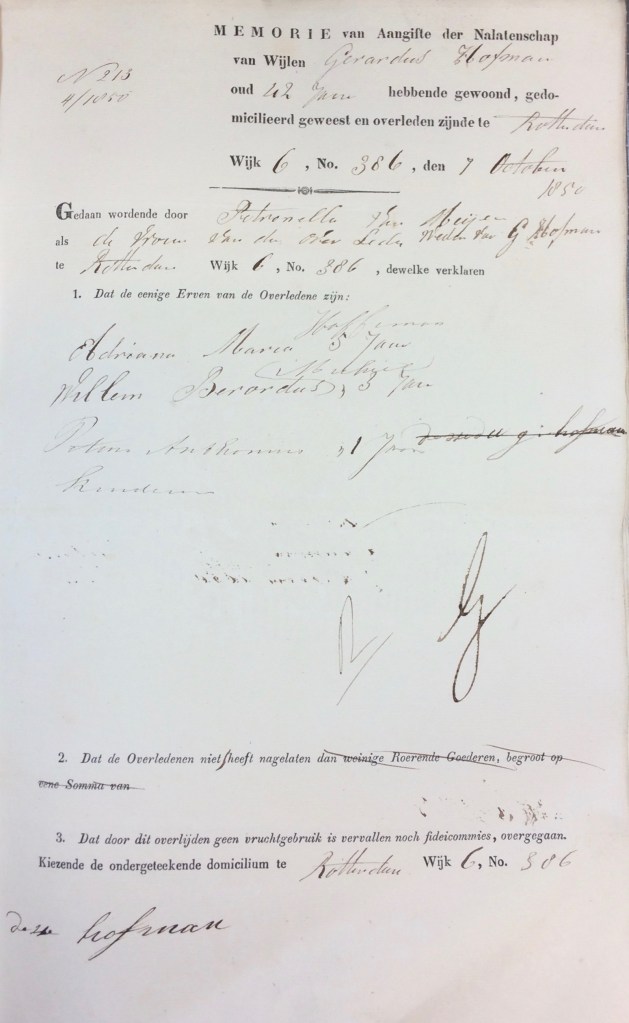 N 213
4/1850
MEMORIE van Aangifte der Nalatenschap
van Wijlen Gerardus Hofman
oud 42 Jaar hebbende gewoond, gedo-
micilieerd geweest en overleden zijnde te Rotterdam
Wijk 6, No. 386, den 7 October
1850
Gedaan wordende door Petronella van Meijen
als de Vrouw van den over Leden Weden van G Hofman
te Rotterdam Wijk 6, No. 386, dewelke verklaren
1. Dat de eenige Erven van de Overledene zijn:
Adriana Maria 5 Jaar
Willem Berardus, 3 Jaar
Anthonius, 1 Jaar hofman
Kinderen
2. Dat de Overledenen niets heeft nagelaten dan weinige Roerende Goederen, begroot op
eene Somma van
3. Dat door dit overlijden geen vruchtgebruik is vervallen noch fideicommies, overgegaan.
Kiezende de ondergeteekende domicilium te Rotterdam Wijk 6, No. 386
hofman